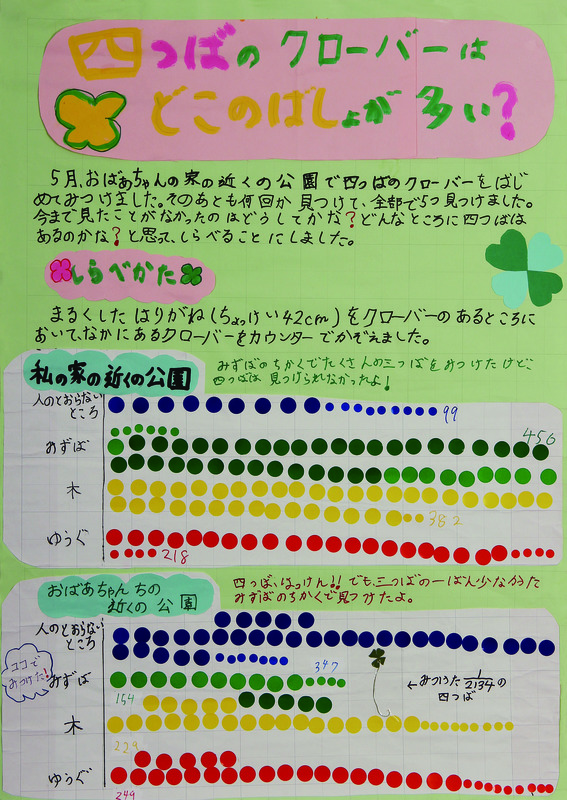 四つばの クローバーは
どこのばしょが 多い?
5月、おばあちゃんの家の近くの公園で四つばのクローバーをはじ
めてみつけました。そのあとも何回か見つけて、全部で5つ見つけました。
今まで見たことがなかったのはどうしてかな?どんなところに四つばは
あるのかな?と思って、しらべることにしました。
しらべかた
まるくした はりがね(ちょっけい42cm)をクローバーのあるところに
おいて、なかにあるクローバーをカウンターでかぞえました。
私の家の近くの公園
みずばのちかくでたくさんの三つばをみつけたけど、
四つばは見つけられなかったよ!
人のとおらない
ところ
99
みずば
456
木
382
ゆうぐ
218
おばあちゃんちの
近くの公園
四つば、はっけん!!でも、三つばの一ばん少なかった
みずばのちかくで見つけたよ。
人のとおらない
ところ
347
ココで
みつけた!
みずば
154
←みつけた 1/2134の
四つば
木
229
ゆうぐ
249